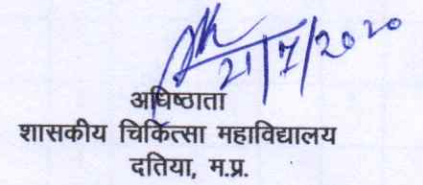 21/7/2020
अधिष्ठाता
शासकीय चिकित्सा महाविद्यालय
दतिया, म.प्र.